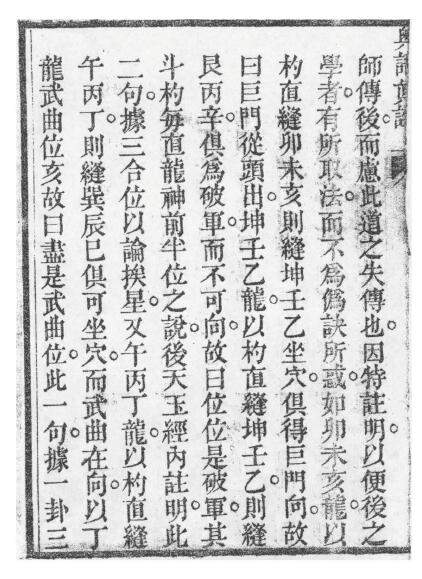 師傳後。而慮此道之失傳也。因特註明。以便後之
學者有所取法。而不爲僞訣所惑。如卯未亥龍以
杓直縫卯未亥則縫坤壬乙坐穴。俱得巨門向。故
曰巨門從頭出。坤壬乙龍以杓直縫坤壬乙。則縫
艮丙辛。俱爲破軍而不可向。故曰位位是破軍。其
斗杓每直龍神前半位之說。後天玉經內註明此
二句。據三合位以論挨星。又午丙丁龍以杓直縫
午丙丁則縫巽辰巳俱可坐穴。而武曲在向。以丁
龍武曲位亥故曰盡是武曲位。此一句據一卦三